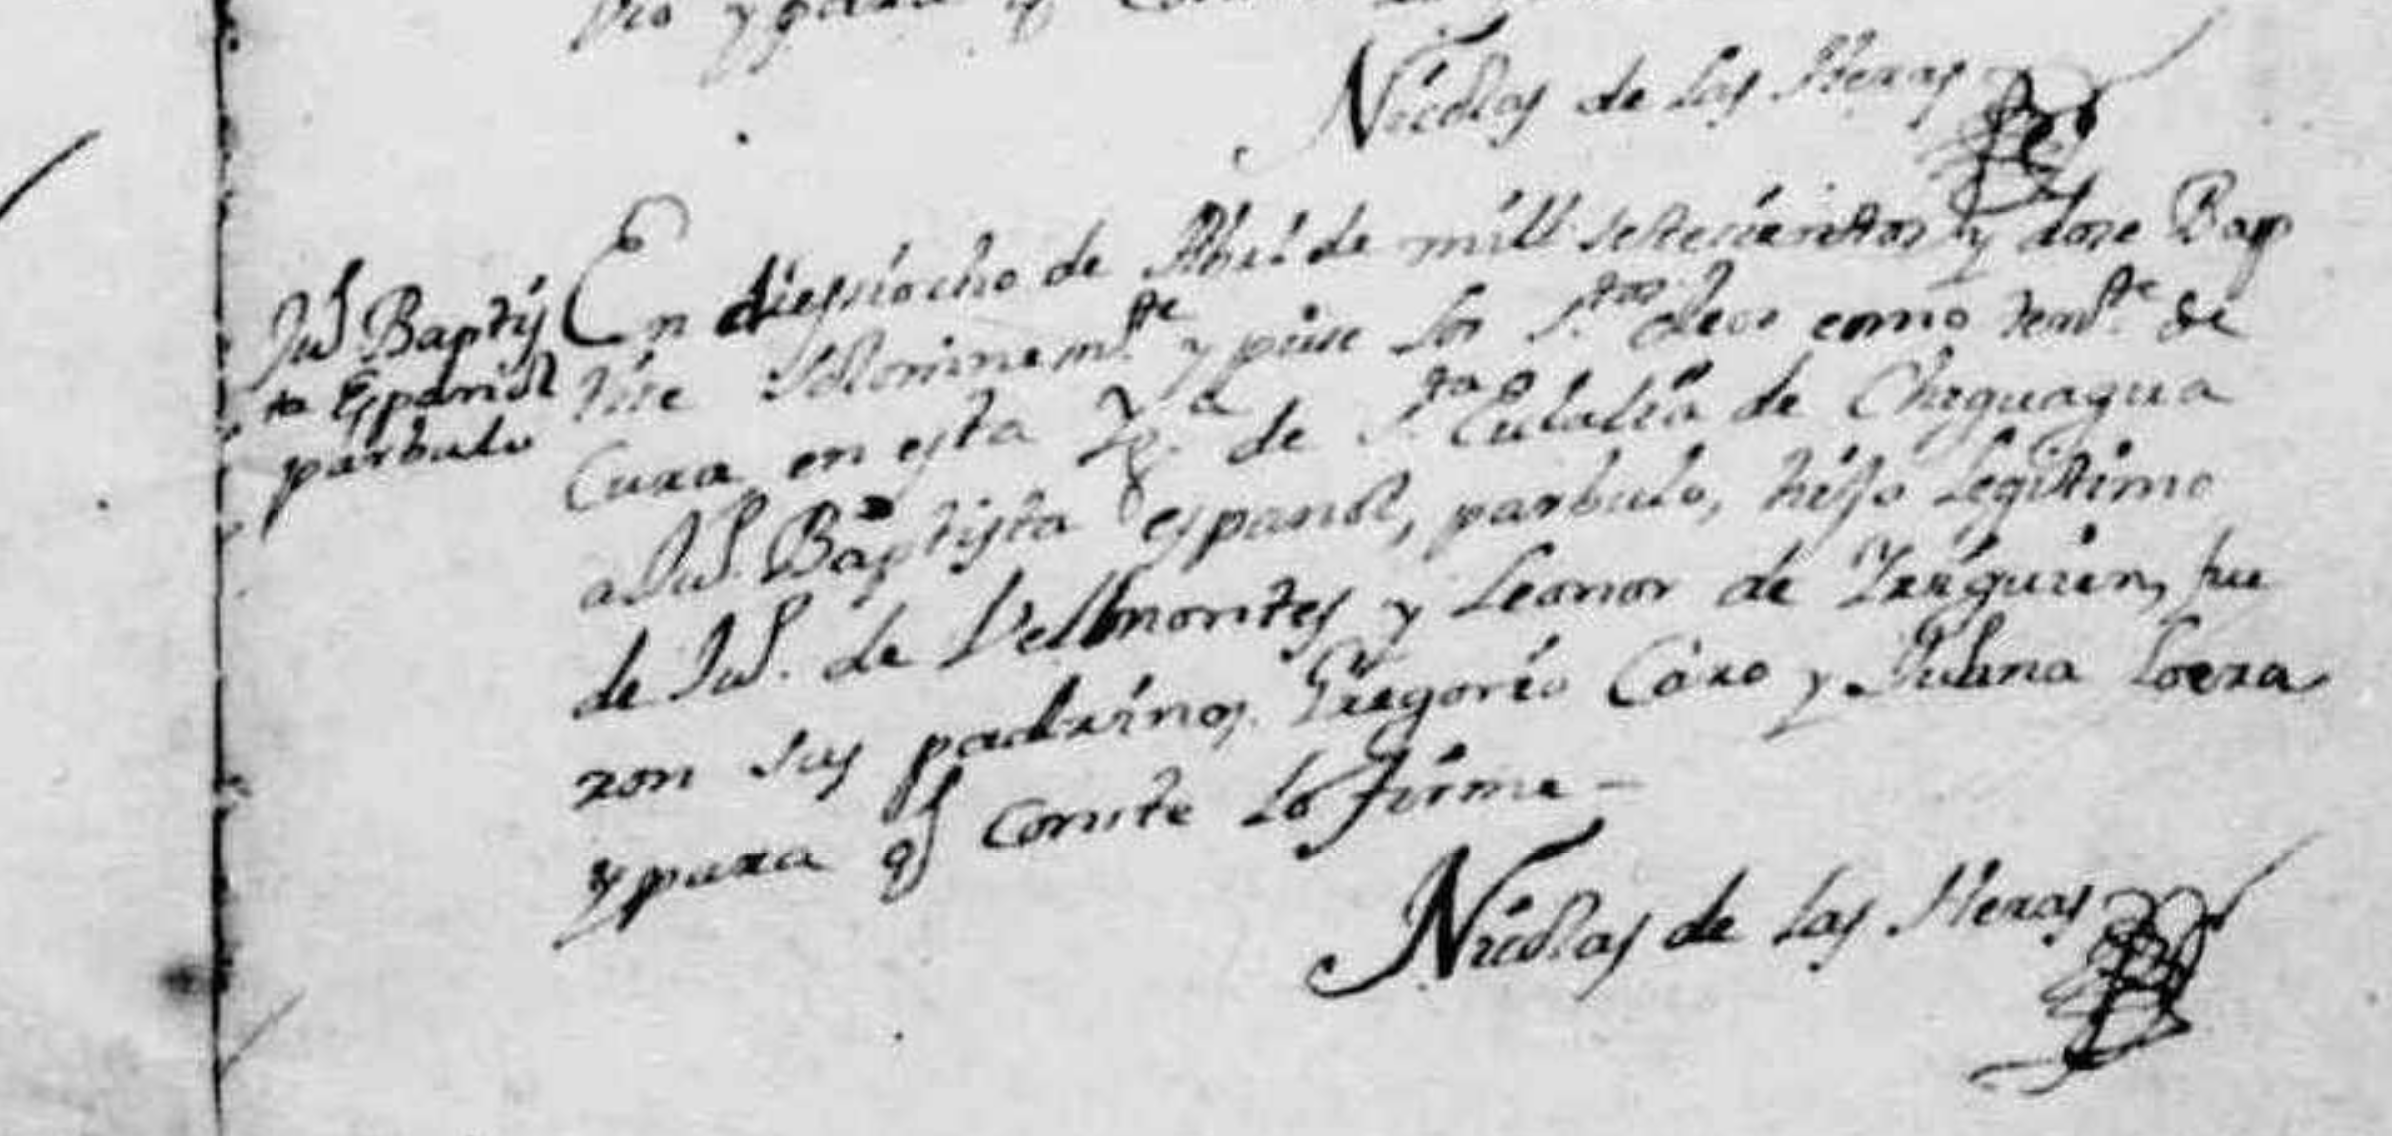 y para q
Nicolas de las Heras
Juº Baptis
ta Español
parbulo
En diesiocho de Abril de mill setecientos y dose Bap
tise Solemnemte y puse los Stos oleos como tente de
Cura en esta Yga de Sta Eulalia de Chiguagua
a Juº. Baptista español, parbulo, hijo Legitimo
de Juº. de Vellmontes y Leonor de Yrriguien, fue
ron sus padrinos Gregorio Caro y Juana Loera
y para q Conste lo firme -
Nicolas de las Heras